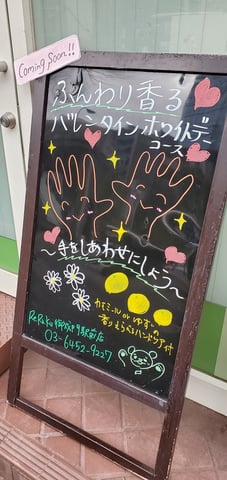 Coming Soon!!
ふんわり香る
バレンタインホワイトデー
コース
~手をしあわせにしよう~
カモミール or ゆずの
香りえらべるハンドケア付
03-6452-9227